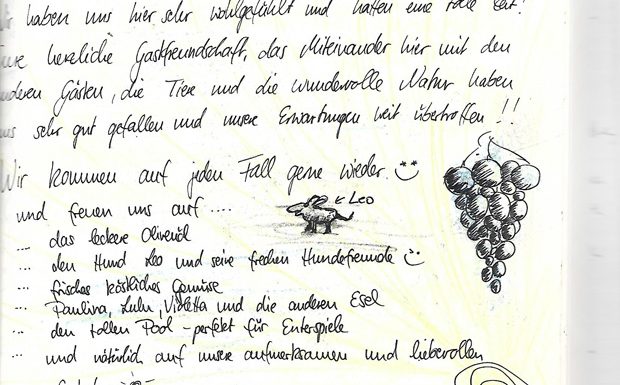 haben uns hier sehr wohlgefühlt und hatten eine tolle Zeit!
herzliche Gastfreundschaft, das Miteinander hier mit den
anderen Gästen, die Tiere und die wundervolle Natur haben
uns sehr gut gefallen und unsere Erwartungen weit übertroffen!!
Wir kommen auf jeden Fall gerne wieder
← Leo
und freuen uns auf ....
... das leckere Olivenöl
... den Hund Leo und seine frechen Hundefreunde
... frisches köstliches Gemüse
... Paulina, Lulu, Violetta und die anderen Esel
... den tollen Pool - perfekt für Entenspiele
... und natürlich auf unsere aufmerksamen und liebevollen